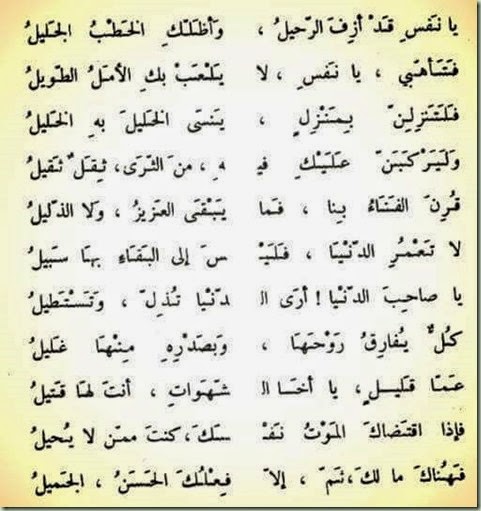 يا نَفسِ قَدْ أزِفَ الرّحيلُ ، وَأظَلّكِ الخَطْبُ الجَليلُ
فَتَأهّبي ، يا نَفسِ ، لا يَلعَبْ بكِ الأمَلُ الطّويلُ
فَلَتَنزِلِنّ بِمَنْزِلٍ ، يَنسَى الخَليلَ بهِ الخَليلُ
وَلَيَرْكَبَنّ عَلَيْكِ فيهِ ، منَ الثّرَى، ثِقَلٌ ثَقيلُ
قُرِنَ الفَنَاءُ بِنا ، فَما يَبْقَى العَزيزُ ، وَلا الذّليلُ
لا تَعْمُرِ الدّنْيَا ، فَلَيْسَ إلى البَقَاءِ بهَا سَبيلُ
يا صاحِبَ الدّنْيا ! أرَى الدّنْيا تُذِلّ ، وَتَسْتَطيلُ
كُلٌّ يُفارِقُ رَوْحَهَا ، وَبصَدْرِهِ مِنْهَا غَليلُ
عَمّا قَليلٍ، يا أخَا الشّهَواتِ ، أنتَ لهَا قَتيلُ
فإذا اقتَضاكَ المَوْتُ نَفْسَكَ، كنتَ ممّن لا يُحيلُ
فَهُناكَ ما لكَ، ثَمّ ، إلاّ فِعْلُكَ الحَسَنُ ، الجَميلُ